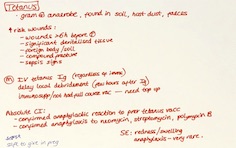 Tetanus
- gram ⊕ anaerobe, found in soil, hst-dust, faeces
↑ risk wounds:
- wounds >6h before
- significant devitalised tissue
- foreign body/soil
- compound fracture
- sepsis signs
IV tetanus Ig (regardless of imms)
delay local debridement (hours after Ig)
immunosupp/not had full course vac → need top up
Absolute CI:
- confirmed anaphylactic reaction to prev tetanus vacc
- confirmed anaphylaxis to neomycin, streptomycin, polymyxin B
safe to give in preg
SE: redness/swelling
anaphylaxis - very rare.